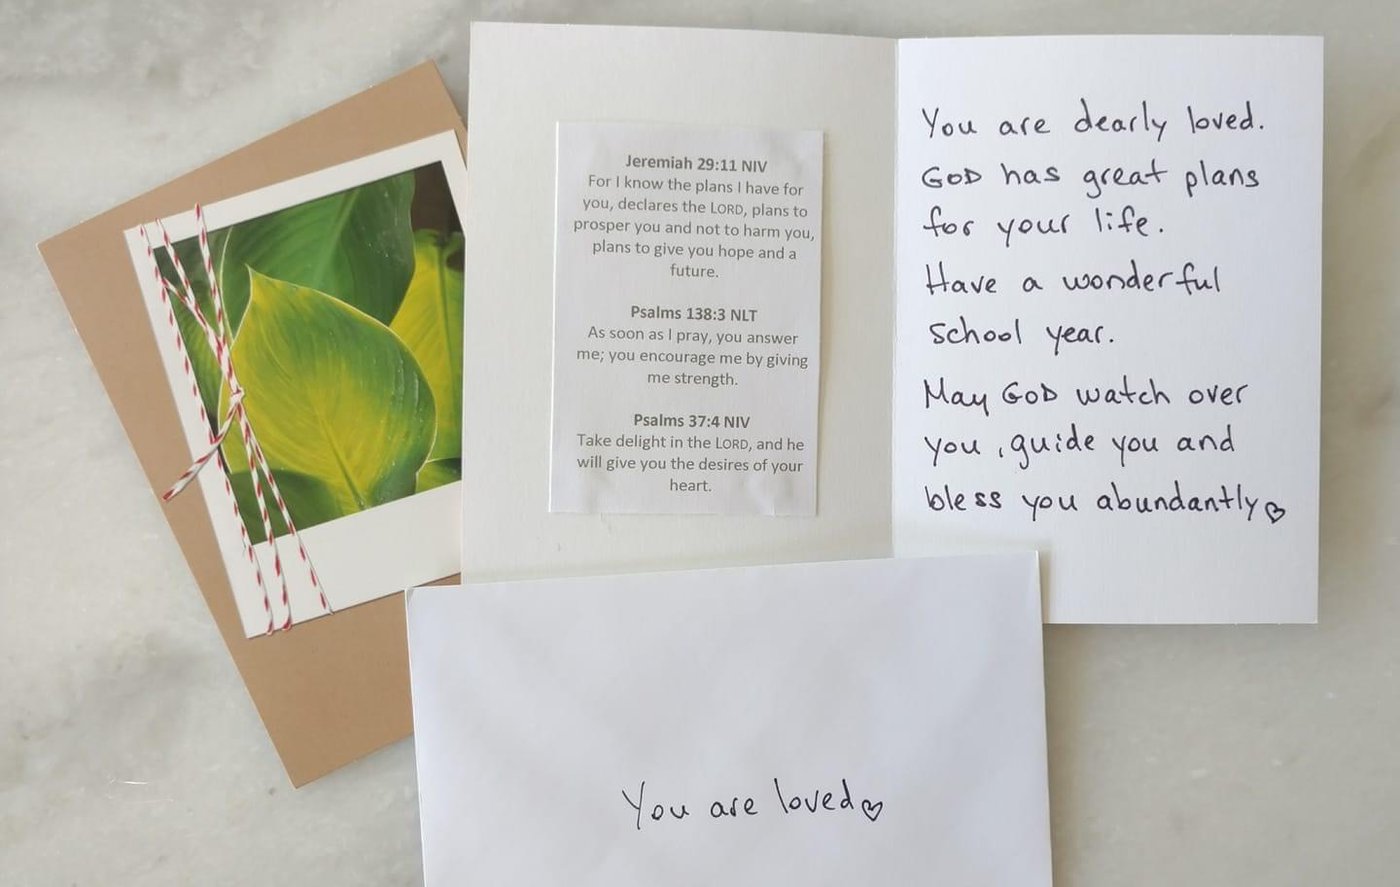 Jeremiah 29:11 NIV
For I know the plans I have for
you, declares the LORD, plans to
prosper you and not to harm you,
plans to give you hope and a
future.
Psalms 138:3 NLT
As soon as I pray, you answer
me; you encourage me by giving
me strength.
Psalms 37:4 NIV
Take delight in the LORD, and he
will give you the desires of your
heart.
You are dearly loved.
GOD has great plans
for your life.
Have a wonderful
school year.
May GOD watch over
you , guide you and
bless you abundantly
You are loved